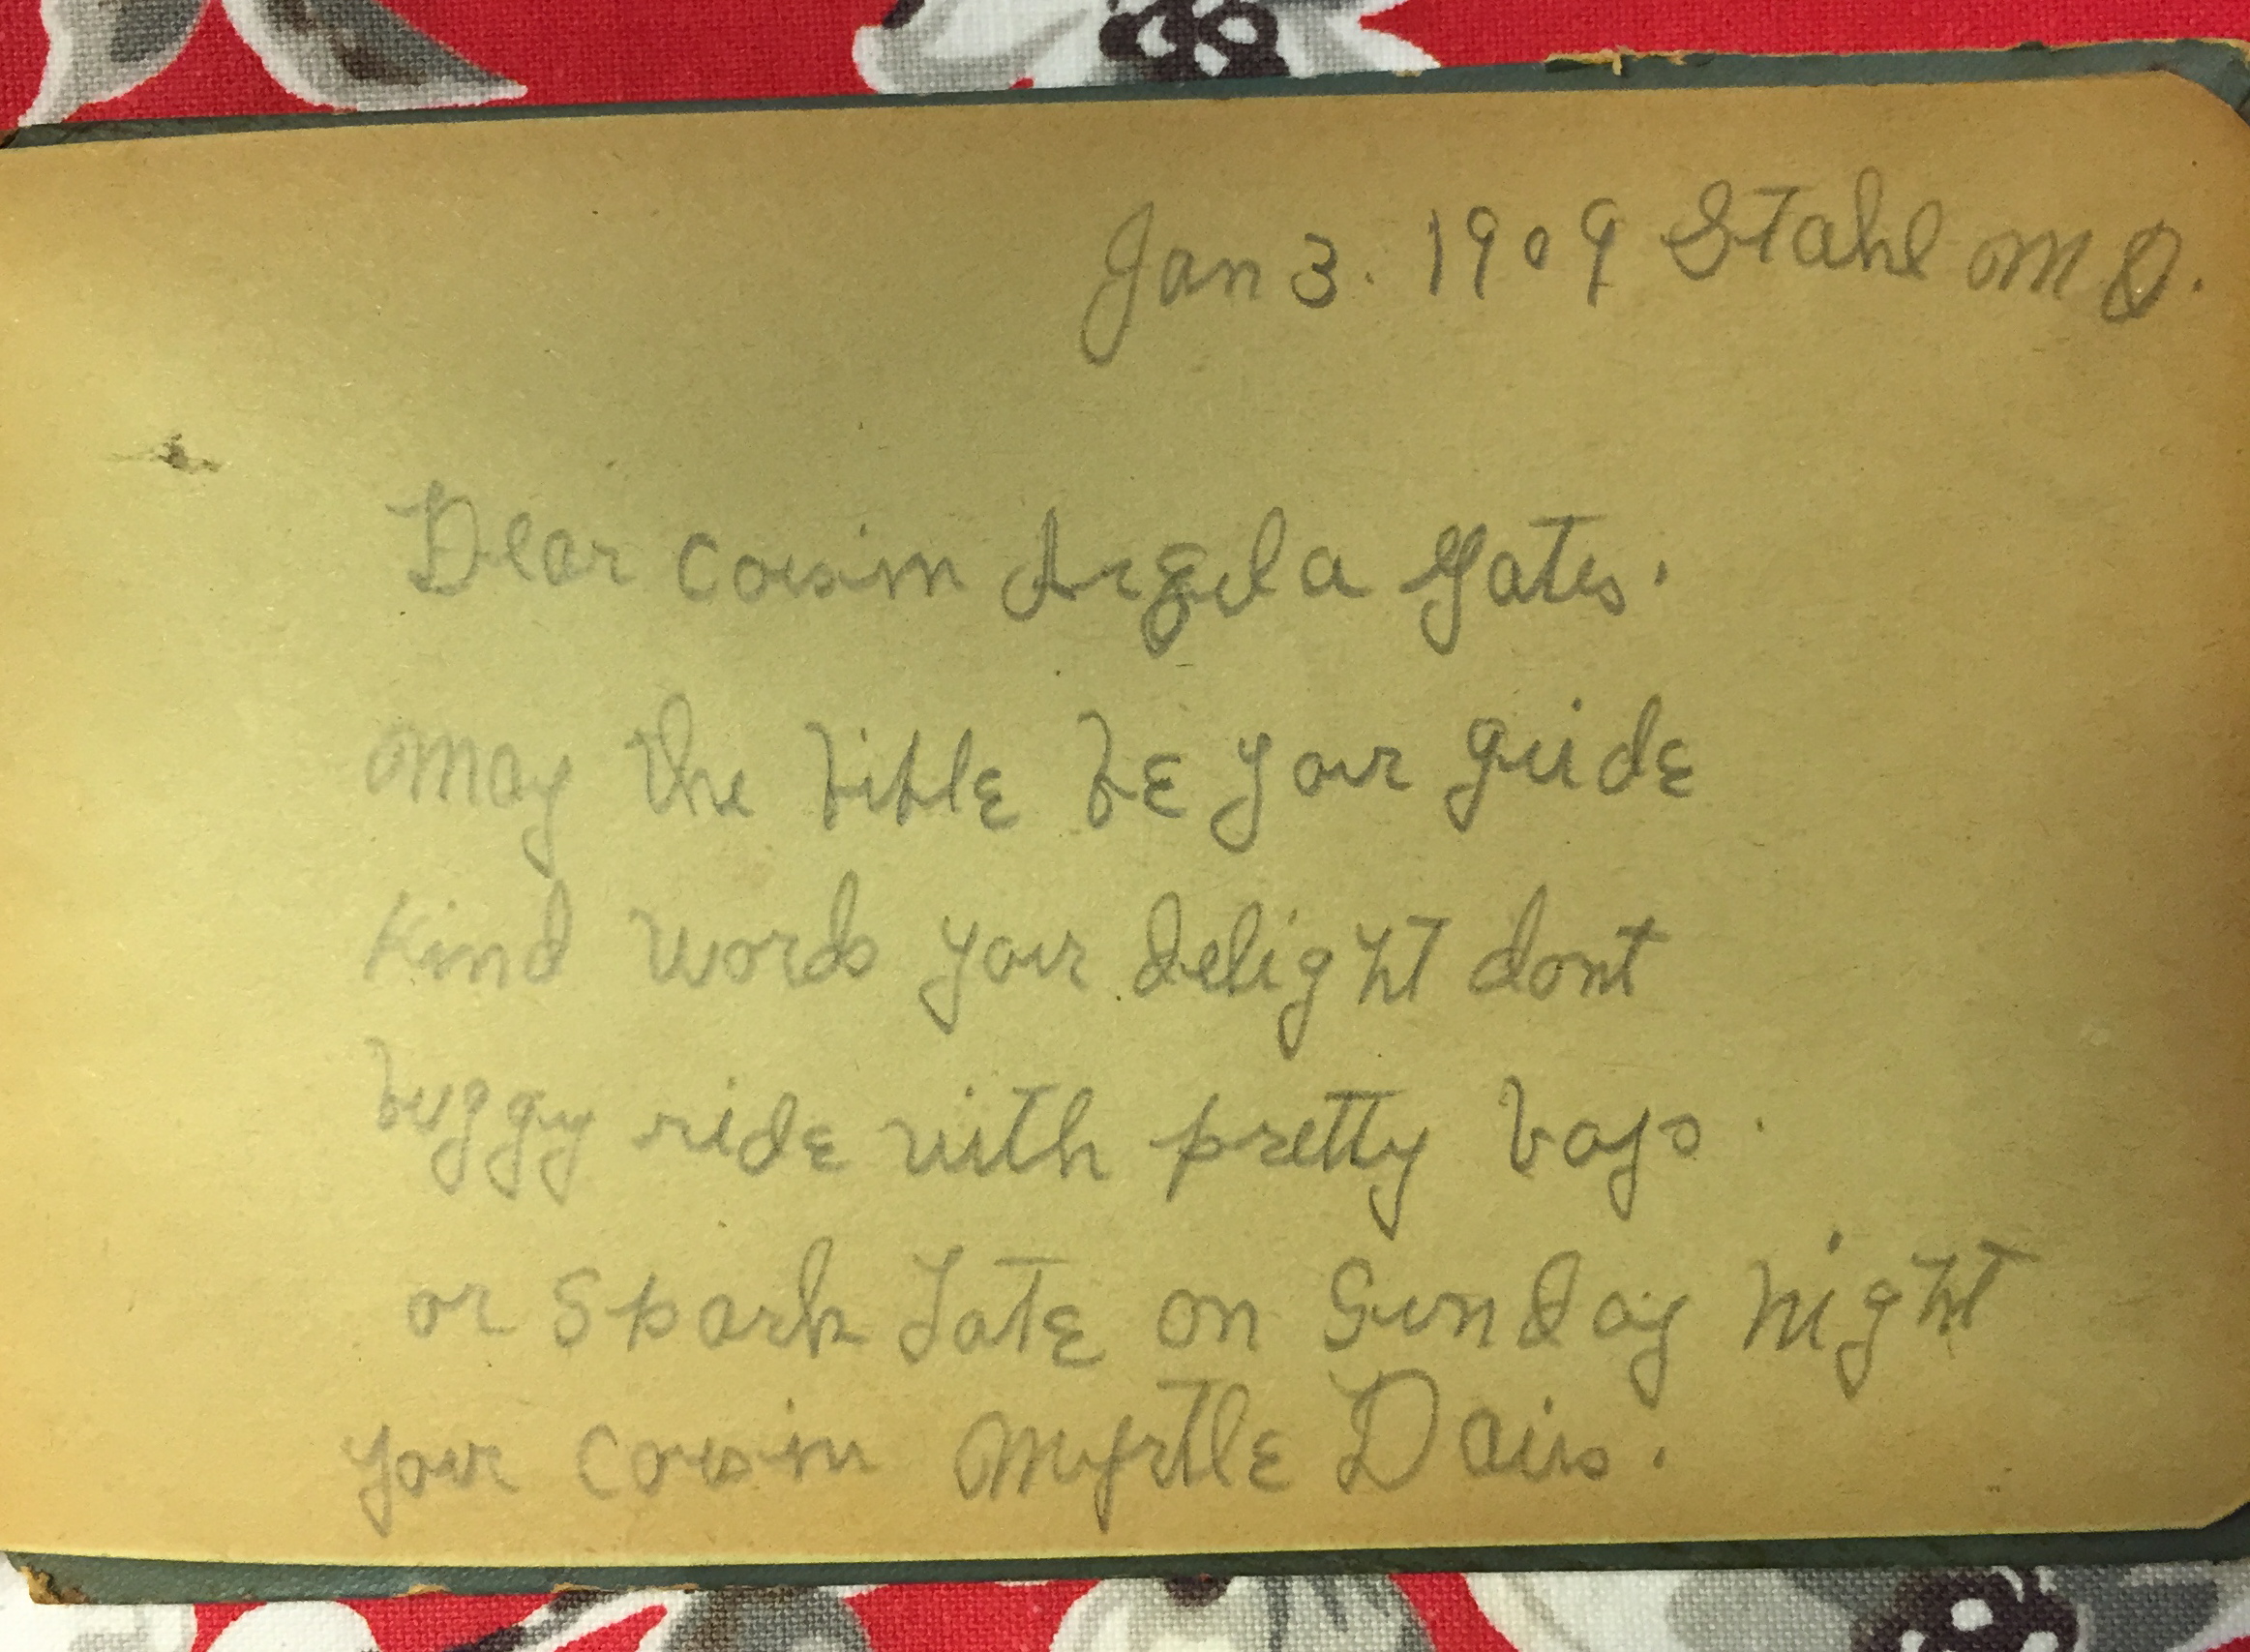 Jan 3. 1909 Stahl MO.
Dear cousin Argela Yates.
May the bible be your guide
Kind words your delight dont
buggy ride with pretty boys.
or Spark Late on Sunday night
your cousin Myrtle Davis.